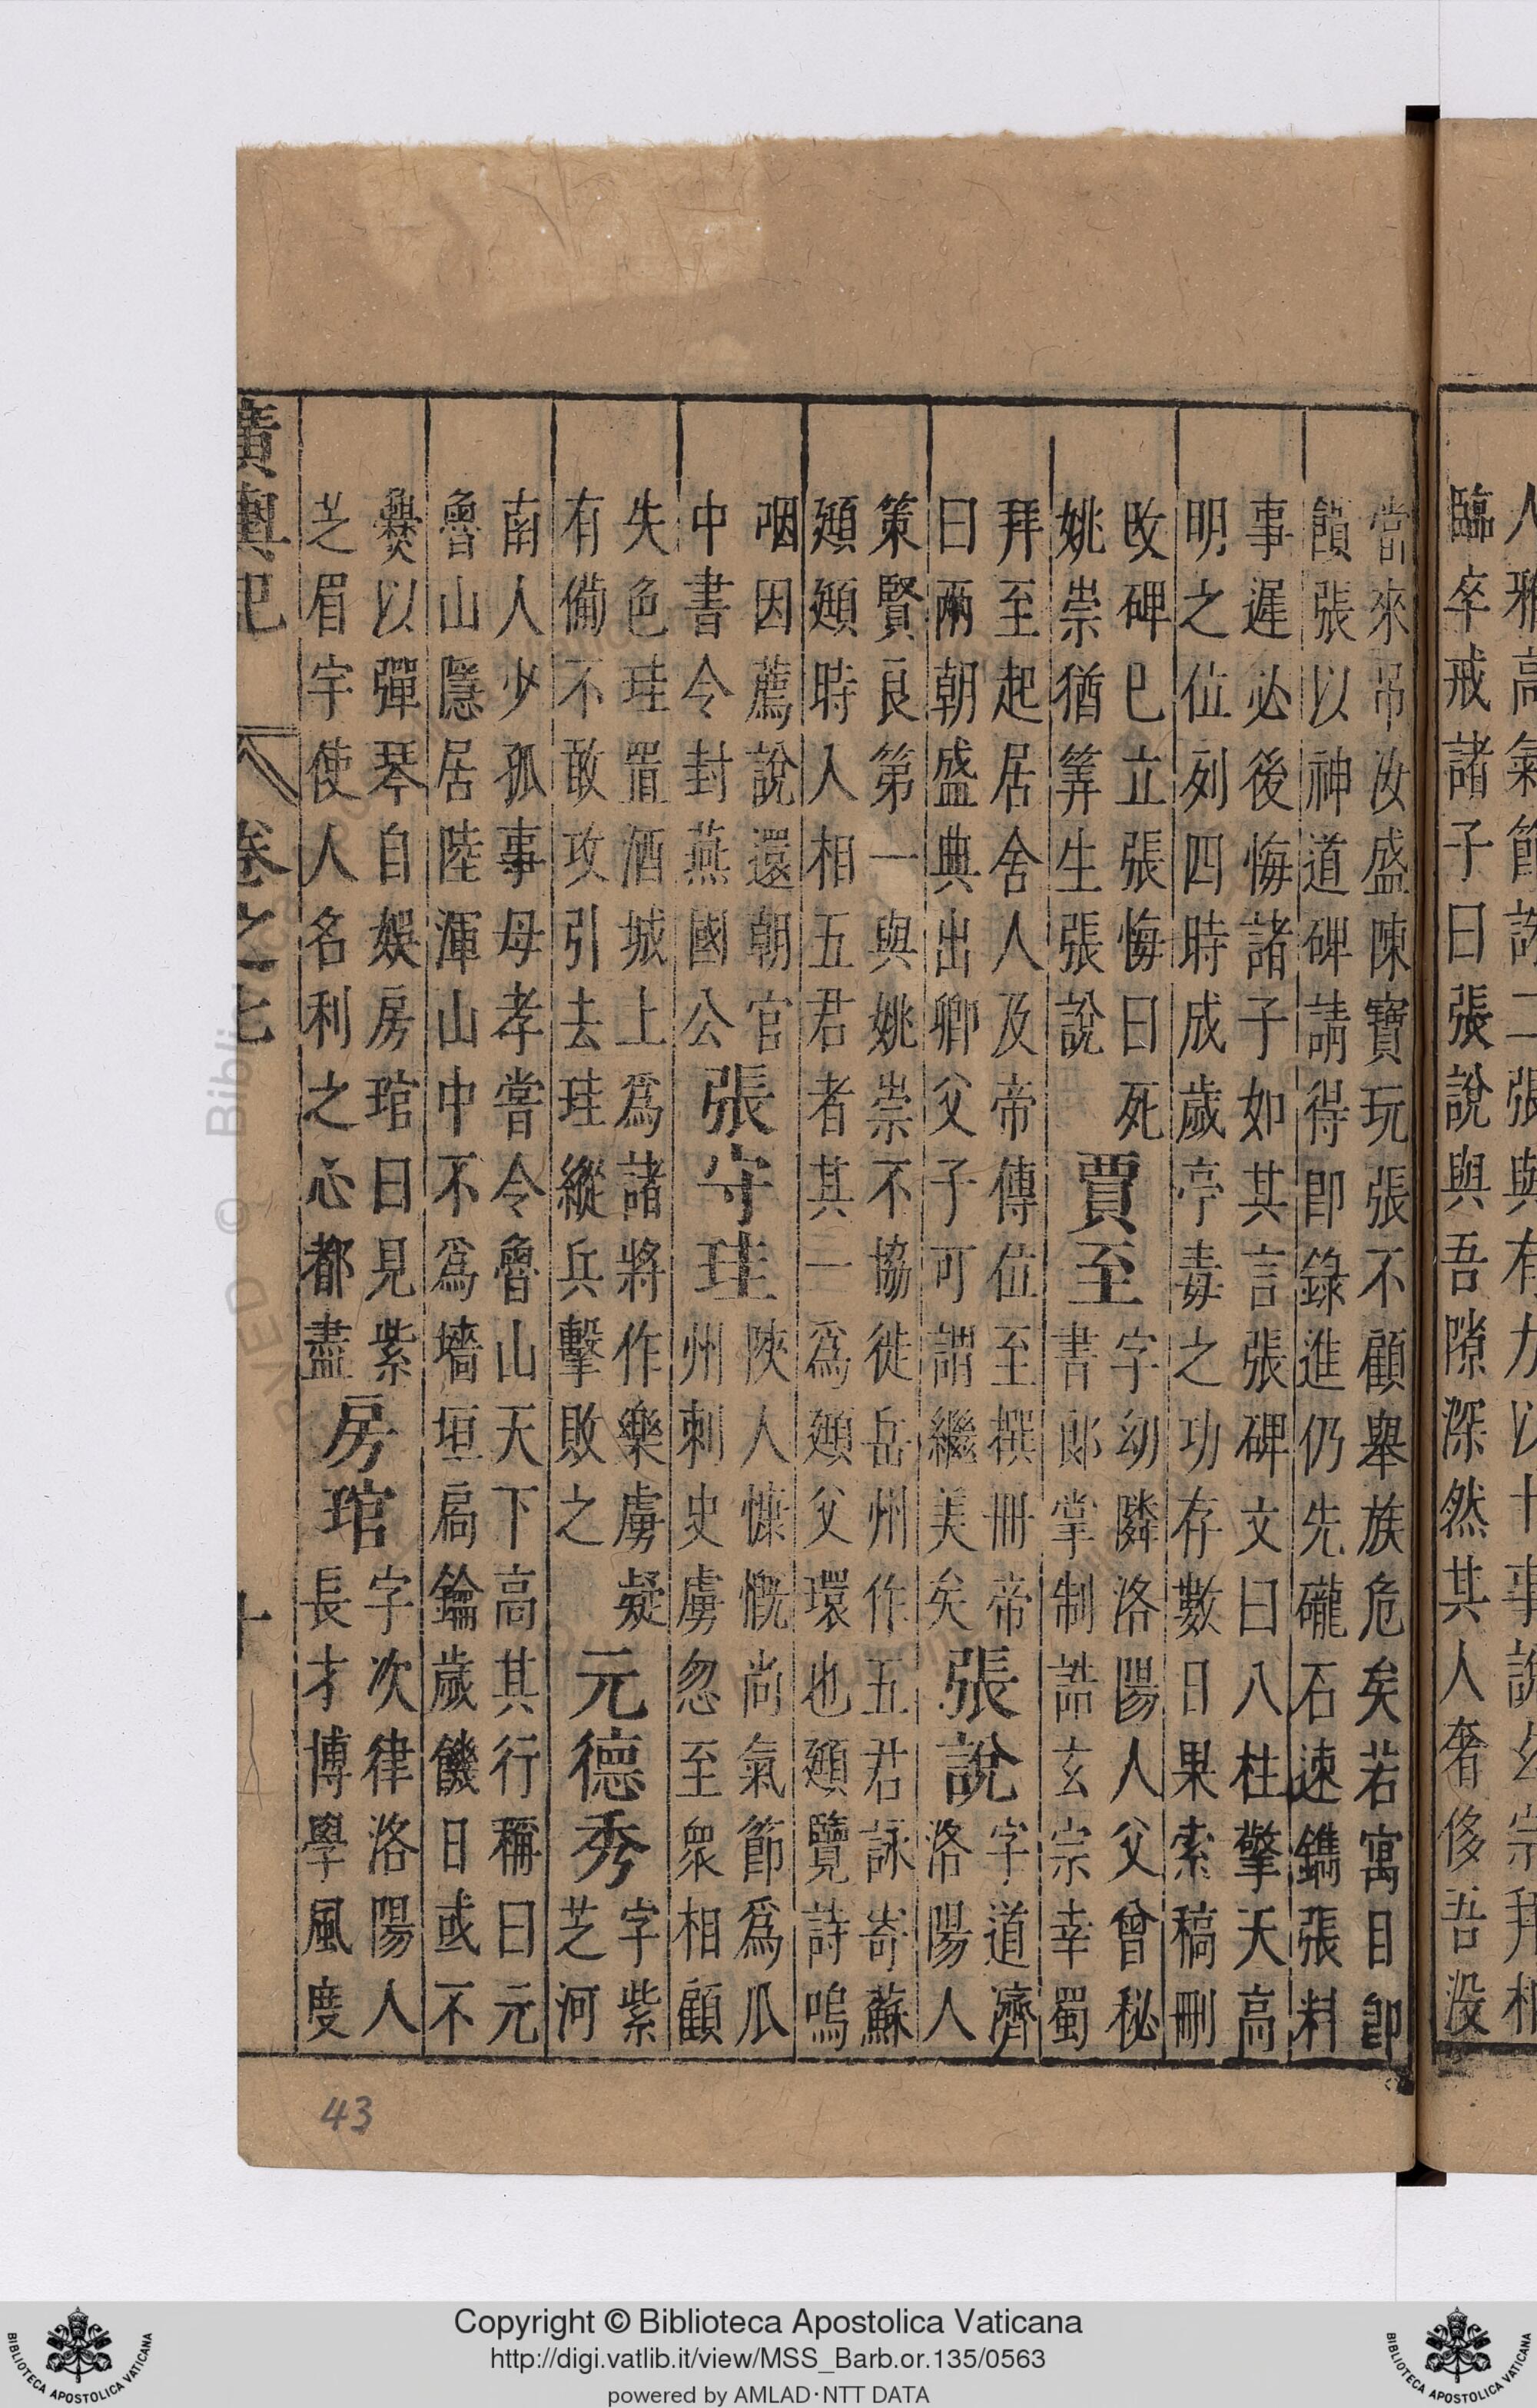 臨卒戒諸子曰張說與吾隙深然其人奢侈吾沒
當來吊汝盛陳寶玩張不顧舉族危矣若寓目即
饋張以神道碑請得即錄進仍先礲石速鐫張料
事遲必後悔諸子如其言張碑文曰八柱擎天高
明之位列四時成歲亭毒之功存數日果索稿刪
改碑已立張悔曰死
姚崇猶筭生張說
賈至
字幼隣洛陽人父曾秘
書郎掌制誥玄宗幸蜀
拜至起居舍人及帝傳位至撰冊帝
曰兩朝盛典出卿父子可謂繼美矣
張說
字道濟
洛陽人
策賢良第一與姚崇不協徙岳州作五君詠寄蘇
頲頲時人相五君者其一爲頲父環也頲覽詩嗚
咽因薦說還朝官
中書令封燕國公
張守珪
陝人慷慨尚氣節爲瓜
州刺史虜忽至衆相顧
失色珪置酒城上爲諸將作樂虜疑
有備不敢攻引去珪縱兵擊敗之
元德秀
字紫
芝河
南人少孤事母孝嘗令魯山天下高其行稱曰元
魯山隱居陸渾山中不爲墻垣扃鑰歲饑日或不
爨以彈琴自娛房琯曰見紫
芝眉宇使人名利之心都盡
房琯
字次律洛陽人
長才博學風度
廣輿記 卷之七 十
43
Copyright © Biblioteca Apostolica Vaticana
http://digi.vatlib.it/view/MSS_Barb.or.135/0563
powered by AMLAD·NTT DATA
BIBLIOTECA APOSTOLICA VATICANA
BIBLIOTECA APOSTOLICA VATICANA